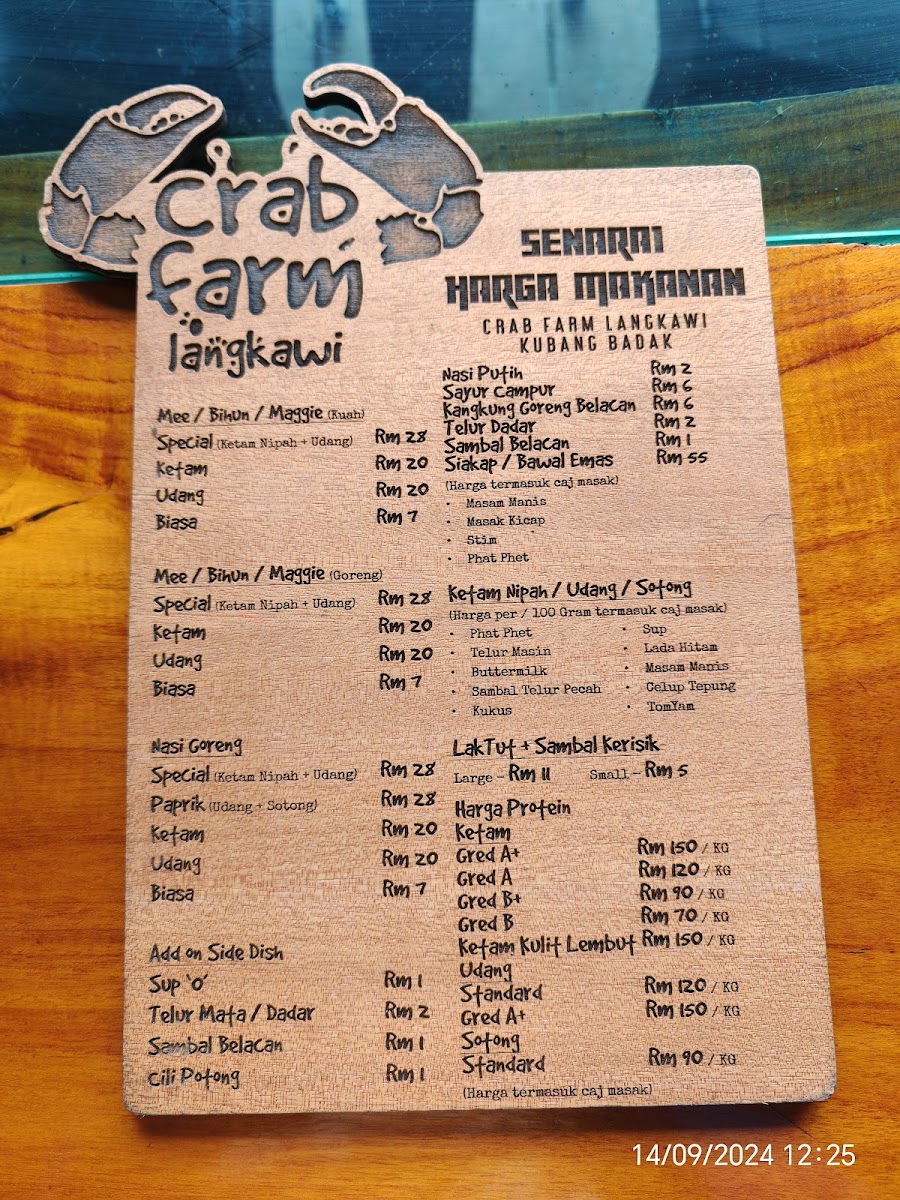 Crab
Farm
langkawi
Mee / Bihun / Maggie (Kuah)
Special (Ketam Nipah + Udang) Rm 28
Ketam Rm 20
Udang Rm 20
Biasa Rm 7
Mee / Bihun / Maggie (Goreng)
Special (Ketam Nipah + Udang) Rm 28
Ketam Rm 20
Udang Rm 20
Biasa Rm 7
Nasi Goreng
Special (Ketam Nipah + Udang) Rm 28
Paprik (Udang + Sotong) Rm 28
Ketam Rm 20
Udang Rm 20
Biasa Rm 7
Add on Side Dish
Sup 'O' Rm 1
Telur Mata / Dadar Rm 2
Sambal Belacan Rm 1
Cili Potong Rm 1
SENARAI
HARGA MAKANAN
CRAB FARM LANGKAWI
KUBANG BADAK
Nasi Putih Rm 2
Sayur Campur Rm 6
Kangkung Goreng Belacan Rm 6
Telur Dadar Rm 2
Sambal Belacan Rm 1
Siakap / Bawal Emas Rm 55
(Harga termasuk caj masak)
· Masam Manis
· Masak Kicap
· Stim
· Phat Phet
Ketam Nipah / Udang / Sotong
(Harga per / 100 Gram termasuk caj masak)
· Phat Phet · Sup
· Telur Masin · Lada Hitam
· Buttermilk · Masam Manis
· Sambal Telur Pecah · Celup Tepung
· Kukus · TomYam
LakTut + Sambal Kerisik
Large - Rm 11 Small - Rm 5
Harga Protein
Ketam
Gred A+ Rm 150 / KG
Gred A Rm 120 / KG
Gred B+ Rm 90 / KG
Gred B Rm 70 / KG
Ketam Kulit Lembut Rm 150 / KG
Udang
Standard Rm 120 / KG
Gred A+ Rm 150 / KG
Sotong
Standard Rm 90 / KG
(Harga termasuk caj masak)
14/09/2024 12:25